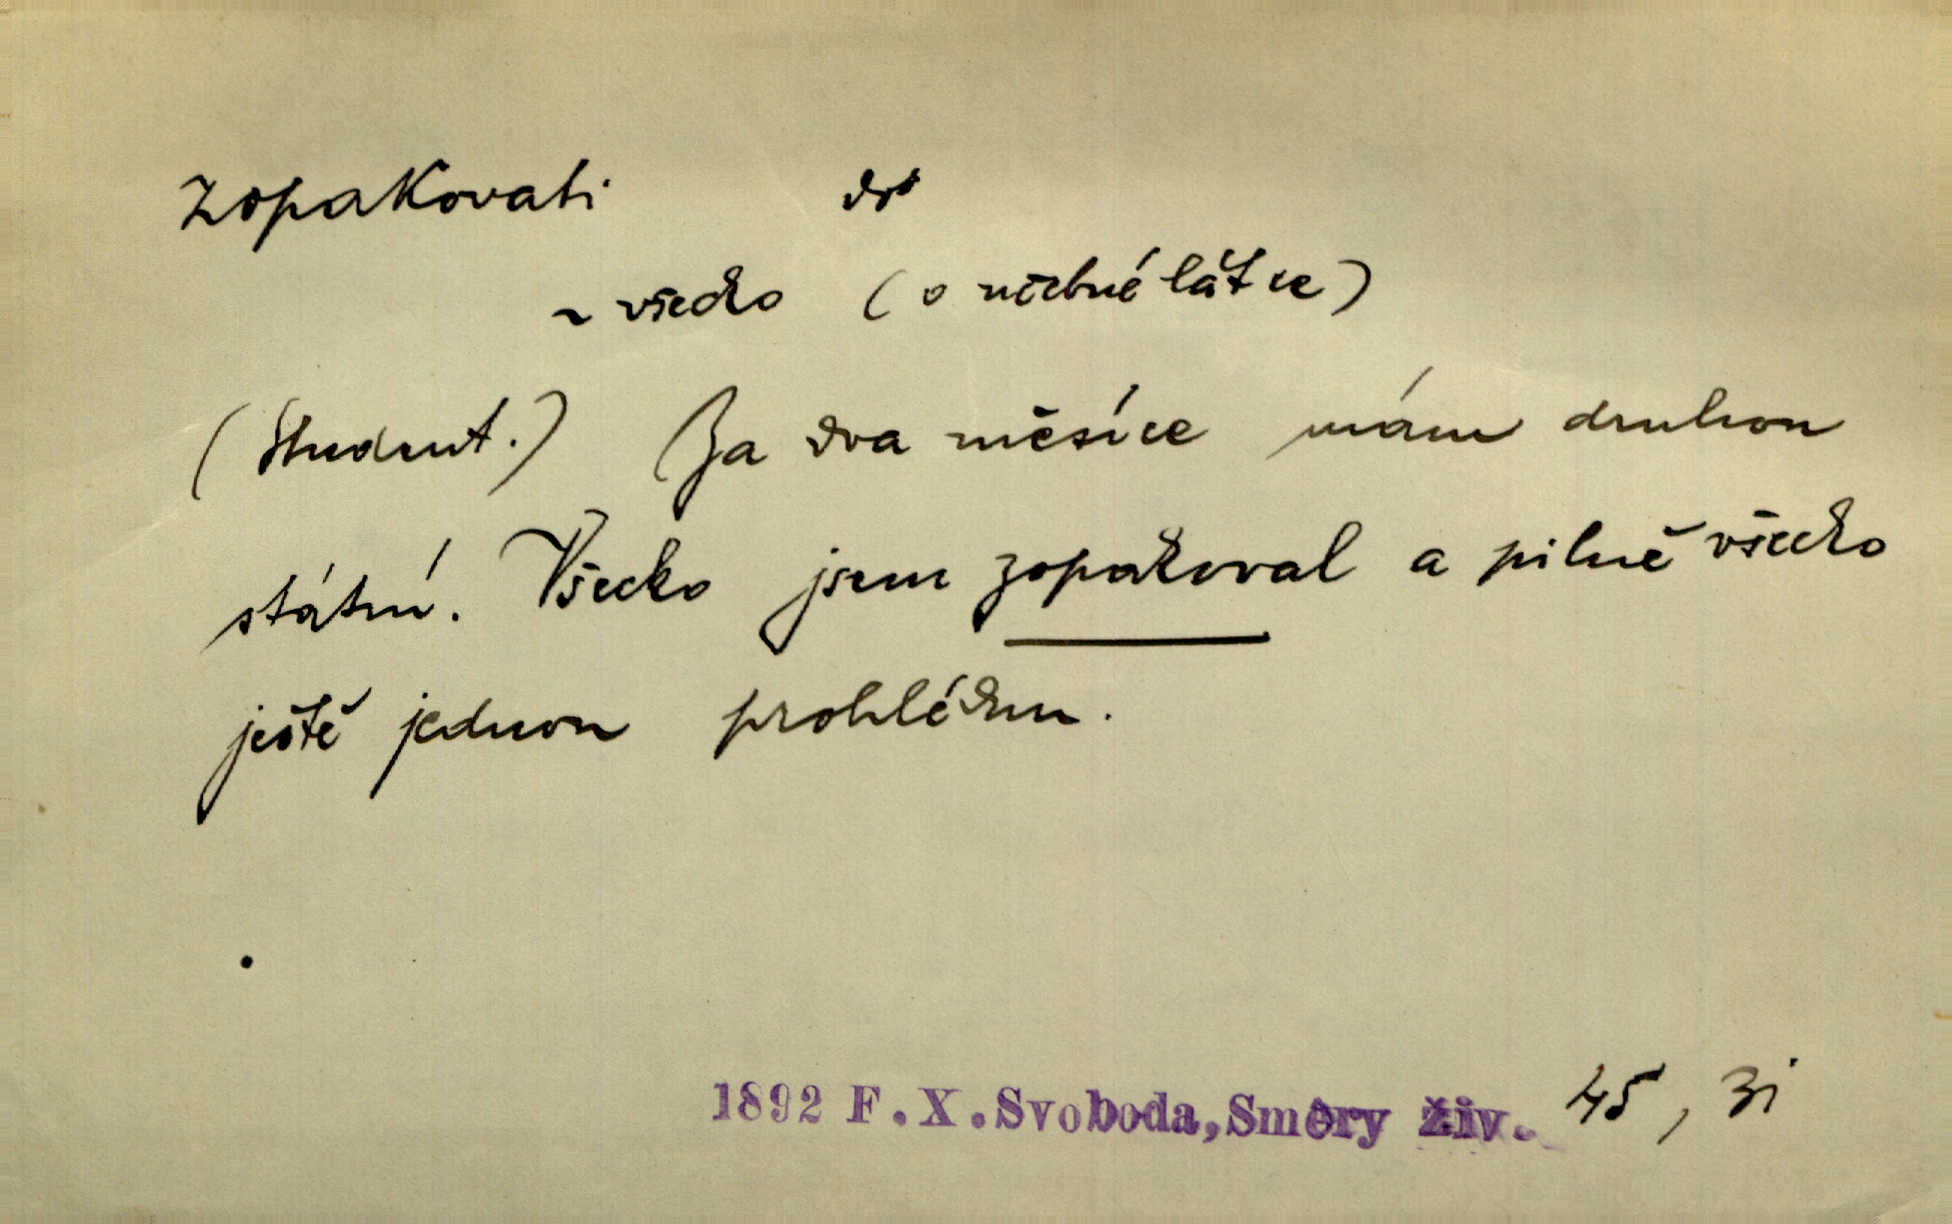 zopakovati dok
~ všecko (o učebné látce)
(Student.) Za dva měsíce mám druhou
státní. Všecko jsem zopakoval a pilně všecko
ještě jednou prohlédnu.
1892 F.X.Svoboda, Směry živ. 45, Zi